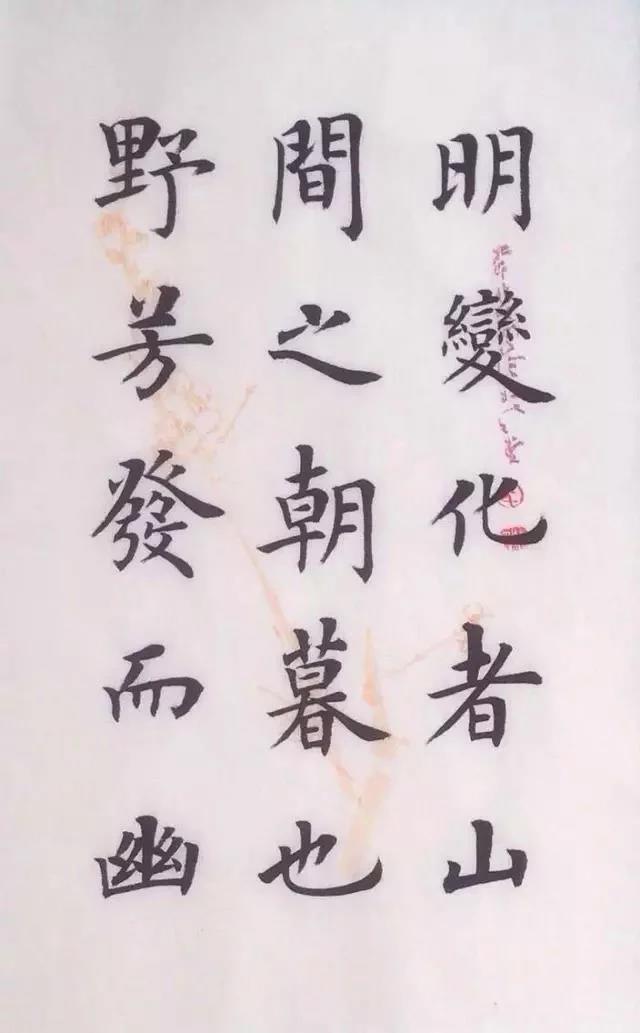 明變化者山
間之朝暮也
野芳發而幽